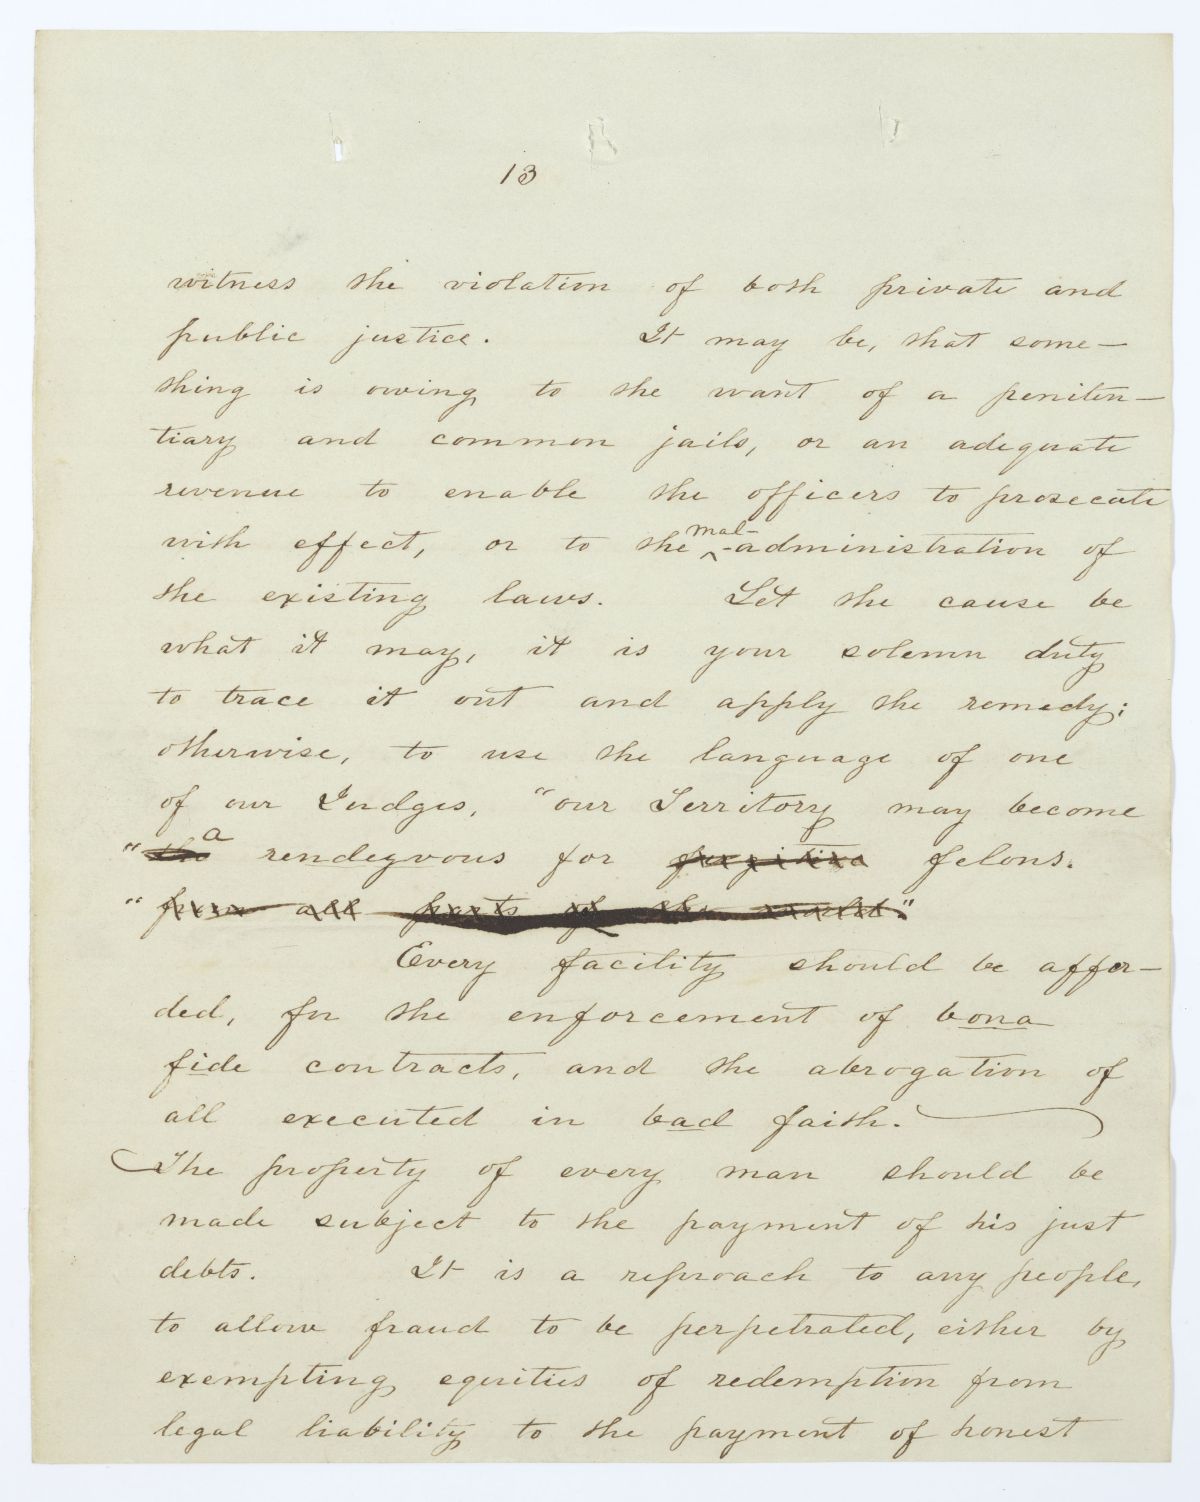 13
witness the violation of both private and
public justice. It may be, that some—
thing is owing to the want of a peniten—
tiary and common jails, or an adequate
revenue to enable the officers to prosecute
with effect, or to the mal-administration of
the existing laws. Let the cause be
what it may, it is your solemn duty
to trace it out and apply the remedy;
otherwise, to use the language of one
of our Judges, "our Territory may become
" the a rendezvous for fugitive felons.
" from all parts of the world."
Every facility should be affor—
ded, for the enforcement of bona
fide contracts, and the abrogation of
all executed in bad faith.
The property of every man should be
made subject to the payment of his just
debts. It is a reproach to any people,
to allow fraud to be perpetrated, either by
exempting equities of redemption from
legal liability to the payment of honest